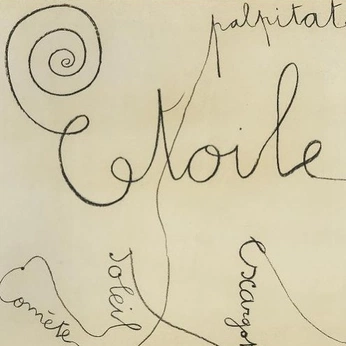 palpitat
Etoile
Comète
Soleil
escargot